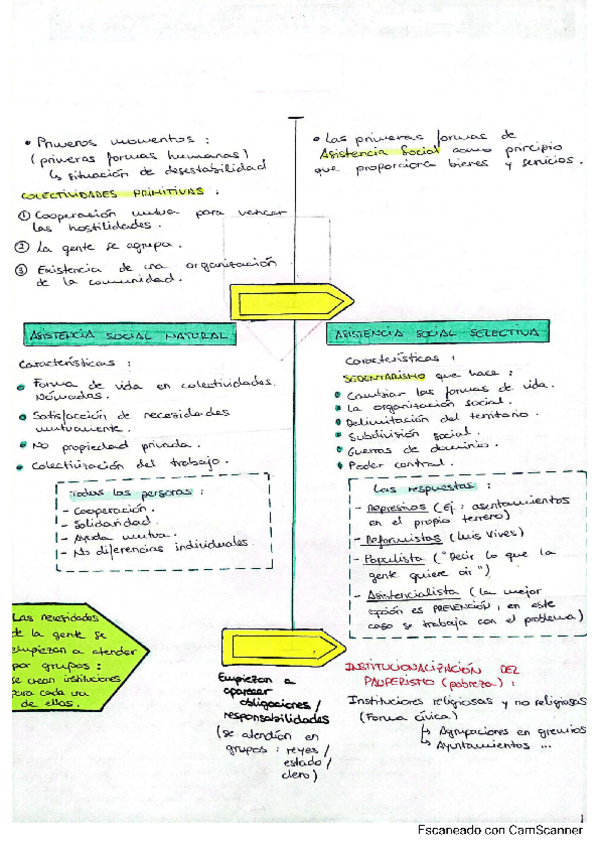 • Primeros momentos :
(primeras formas humanas)
↳ situación de desestabilidad
COLECTIVIDADES PRIMITIVAS :
① Cooperación mutua para vencer
las hostilidades.
② La gente se agrupa.
③ Existencia de una organización
de la comunidad.
• Las primeras formas de
Asistencia Social como principio
que proporciona bienes y servicios.
ASISTENCIA SOCIAL NATURAL
Características :
• Forma de vida en colectividades.
Nómadas.
• Satisfacción de necesidades
mutuamente.
• No propiedad privada.
• Colectivización del trabajo.
Todas las personas :
- Cooperación.
- Solidaridad.
- Ayuda mutua.
- No diferencias individuales.
ASISTENCIA SOCIAL SELECTIVA
Características :
SEDENTARISMO que hace :
• Cambiar las formas de vida.
• La organización social.
• Delimitación del territorio.
• Subdivisión social.
• Guerras de dominio.
• Poder central.
Las respuestas :
- Represivos (Ej : asentamientos
en el propio terreno)
- Reformistas (Luis Vives)
- Populista ("Decir lo que la
gente quiere oir")
- Asistencialista (la mejor
opción es PREVENCIÓN, en este
caso se trabaja con el problema)
Las necesidades
de la gente se
empiezan a atender
por grupos :
se crean instituciones
para cada una
de ellas.
Empiezan a
aparecer
obligaciones /
responsabilidades
(se atendían en
grupos : reyes /
estado /
clero)
INSTITUCIONALIZACIÓN DEL
PAUPERISMO (pobreza) :
Instituciones religiosas y no religiosas
(Forma cívica)
↳ Agrupaciones en gremios
↳ Ayuntamientos ...
1
Escaneado con CamScanner